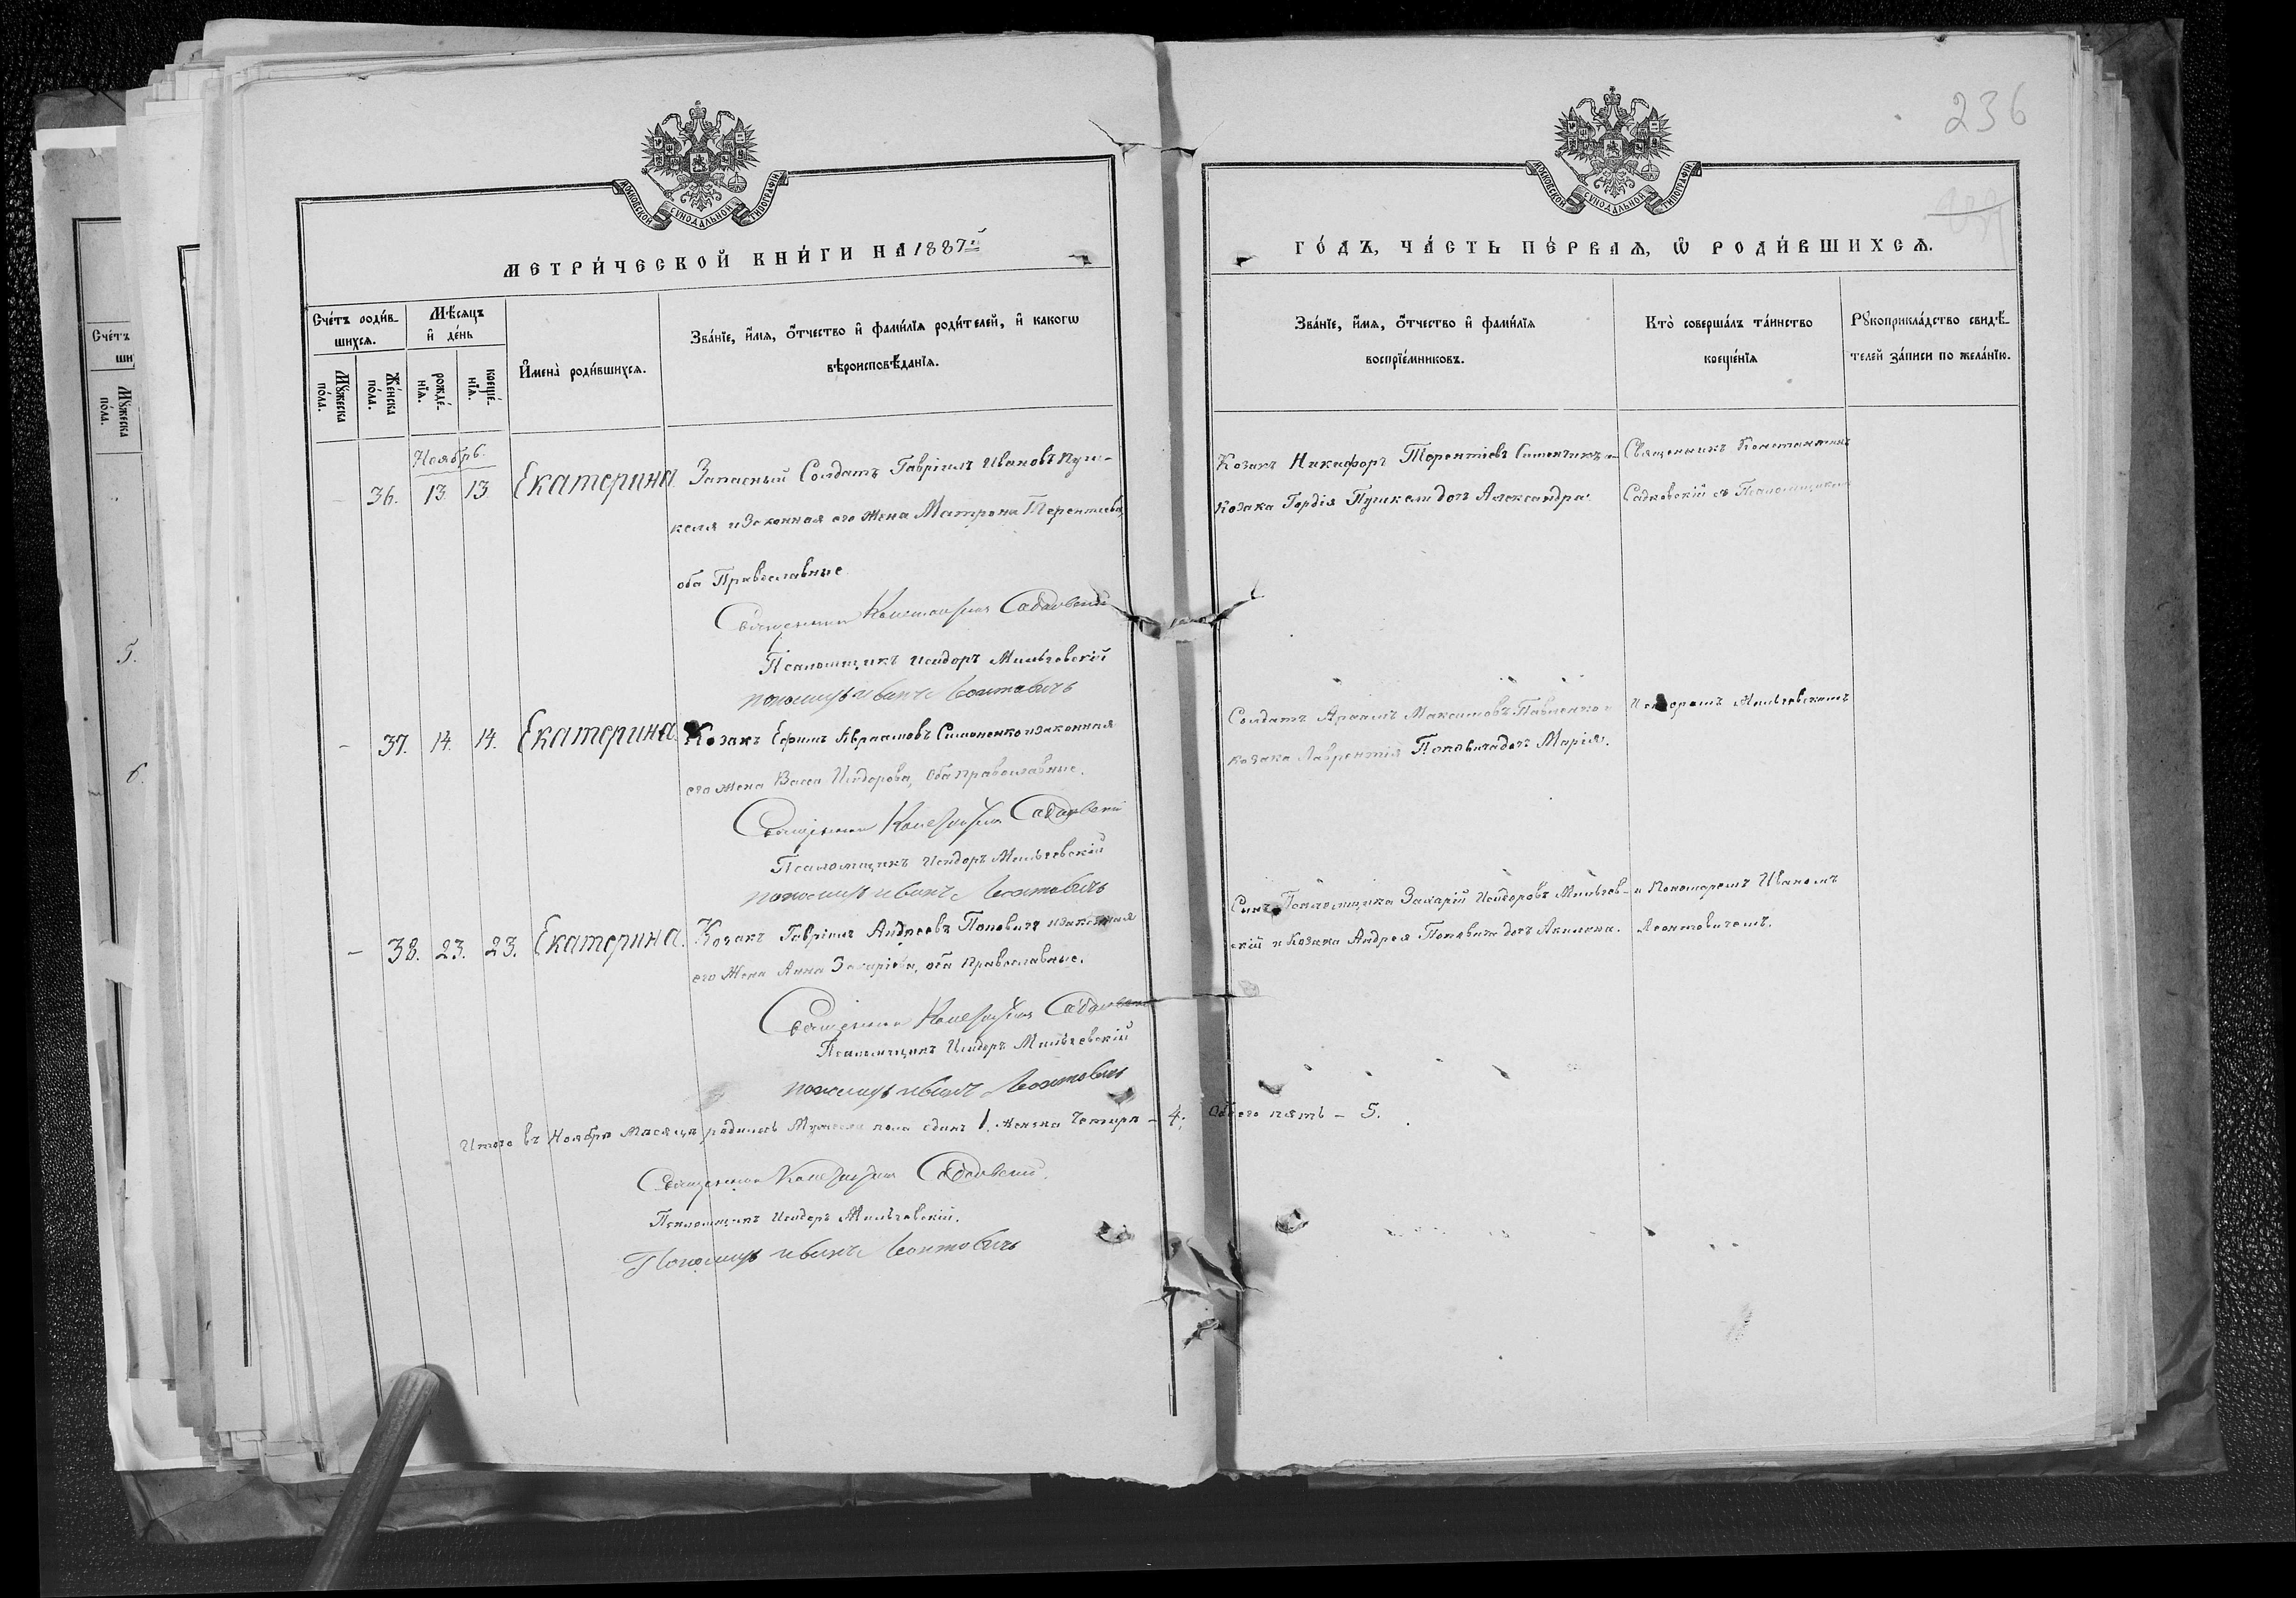 236
МОСКОВСКОЙ СУНОДАЛЬНОЙ ТИПОГРАФІИ
МОСКОВСКОЙ СУНОДАЛЬНОЙ ТИПОГРАФІИ
МЕТРИ́ЧЕСКОЙ КНИ́ГИ НА 1887й
ГО́ДЪ, ЧА́СТЬ ПЕ́РВАЯ, Ѡ РОДИ́ВШИХСЯ.
Сче́тъ роди́в-
шихся.
Мѣ́сяцъ
и҆ де́нь
Му́жеска
по́ла.
Же́нска
по́ла.
рожде́-
нїя.
креще́-
нїя.
И҆мена̀ роди́вшихся.
Зва́нїе, и҆́мя, ѻ҆́тчество и҆ фами́лїя роди́телей, и҆ какогѡ
вѣроисповѣ́данїя.
Зва́нїе, и҆́мя, ѻ҆́тчество и҆ фами́лїя
воспрїе́мниковъ.
Кто̀ соверша́лъ та́инство
креще́нїя
Рꙋкоприкла́дство свидѣ́-
телей за́писи по жела́нїю.
Сче́тъ
ши
Му́жеска
по́ла.
5.
6.
Ноябрь.
36. 13 13 Екатерина Запасный Солдатъ Гавріилъ Ивановъ Пуш-
каля и законная его жена Матрона Терентіева,
оба Православные
Священникъ Константинъ Садковскій
Псаломщикъ Исидоръ Мильгевскій
пономарь Иванъ Леонтовичъ
Козакъ Никифоръ Терентіевъ
Козака Гордія Пушкаля дочь Александра.
Священникъ Константинъ
Садковскій съ Псаломщикомъ
- 37. 14. 14. Екатерина Козакъ Ефимъ Авраамовъ Симоненко и законная
его жена Васса Исидорова, оба православные.
Священникъ Константинъ Садковскій
Псаломщикъ Исидоръ Мильгевскій
пономарь Иванъ Леонтовичъ
Солдатъ Максимовъ Павленко и
козака Лаврентія Поповича дочь Марія.
Исидоромъ Мильгевскимъ
- 38. 23. 23. Екатерина. Козакъ Гавріилъ Андреевъ Поповичъ и законная
его Жена Анна Захаріева, оба Православные.
Священникъ Константинъ Садковскій
Псаломщикъ Исидоръ Мильгевскій
пономарь Иванъ Леонтовичъ
Сынъ Псаломщика Захарій Исидоровъ Мильгев-
скій и Козака Андрея Поповича дочь Акилина.
и Пономаремъ Иваномъ
Леонтовичемъ.
Итого въ Ноябрѣ Мѣсяцѣ родилось Мужеска пола одинъ 1. женска Четыре - 4; Обоего пять - 5.
Священникъ Константинъ Садковскій.
Псаломщикъ Исидоръ Мильгевскій.
Пономарь Иванъ Леонтовичъ